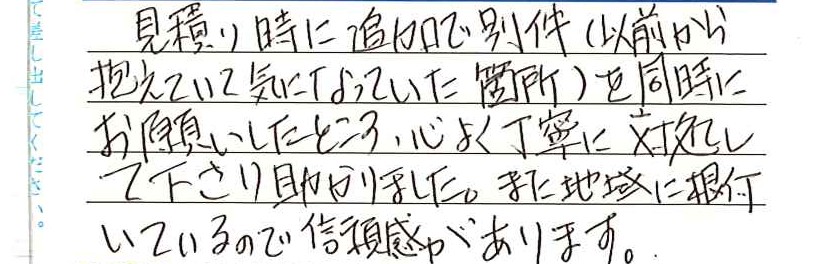 見積り時に追加で別件(以前から
抱えていて気になっていた箇所)を同時に
お願いしたところ、心よく丁寧に対処し
て下さり助かりました。また地域に根付
いているので信頼感があります。
て差し出してください。